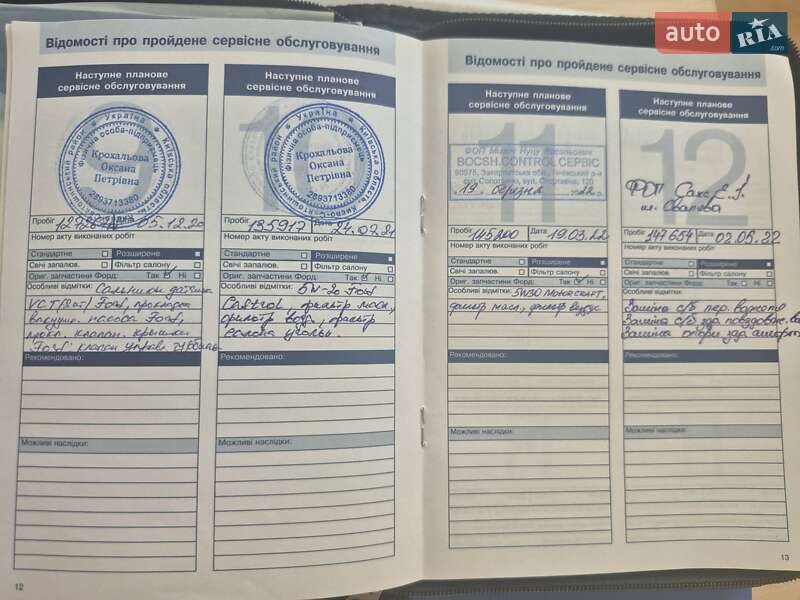 auto RIA .com
Відомості про пройдене сервісне обслуговування
Наступне планове
сервісне обслуговування
Україна
Фізична особа-підприємець
Крохальова
Оксана
Петрівна
2893713380
Пробіг
Дата
05.12.20
Номер акту виконаних робіт
Стандартне
Розширене
Свічі запалюв.
Фільтр салону
Ориг. запчастини Форд: Так Ні
Особливі відмітки: Сальники
VCT Ford, прокладка
вакуум. насоса Ford,
прокл. клапан. крышки
Ford клапан управл
Рекомендовано:
Можливі наслідки:
12
Наступне планове
сервісне обслуговування
Україна
Фізична особа-підприємець
Крохальова
Оксана
Петрівна
2893713380
Пробіг 135917
Дата 24.02.21
Номер акту виконаних робіт
Стандартне
Розширене
Свічі запалюв.
Фільтр салону
Ориг. запчастини Форд: Так Ні
Особливі відмітки: 5W-20 Ford
Castrol, фильтр масл.,
фильтр возд., фильтр
салона угольн.
Рекомендовано:
Можливі наслідки:
Відомості про пройдене сервісне обслуговування
Наступне планове
сервісне обслуговування
11
BOCSH.CONTROL СЕРВІС
19 22
Пробіг
Дата 19.03.22
Номер акту виконаних робіт
Стандартне
Розширене
Свічі запалюв.
Фільтр салону
Ориг. запчастини Форд: Так Ні
Особливі відмітки: 5W30 MOTORCRAFT,
фильтр масл, фильтр
Рекомендовано:
Можливі наслідки:
Наступне планове
сервісне обслуговування
12
ФОП Сакс Е.
Пробіг 147654
Дата 02.05.22
Номер акту виконаних робіт
Стандартне
Розширене
Свічі запалюв.
Фільтр салону
Ориг. запчастини Форд: Так Ні
Особливі відмітки:
Заміна с/б пер. важеля
Заміна с/б зад.
Заміна опори зад
Рекомендовано:
Можливі наслідки:
13